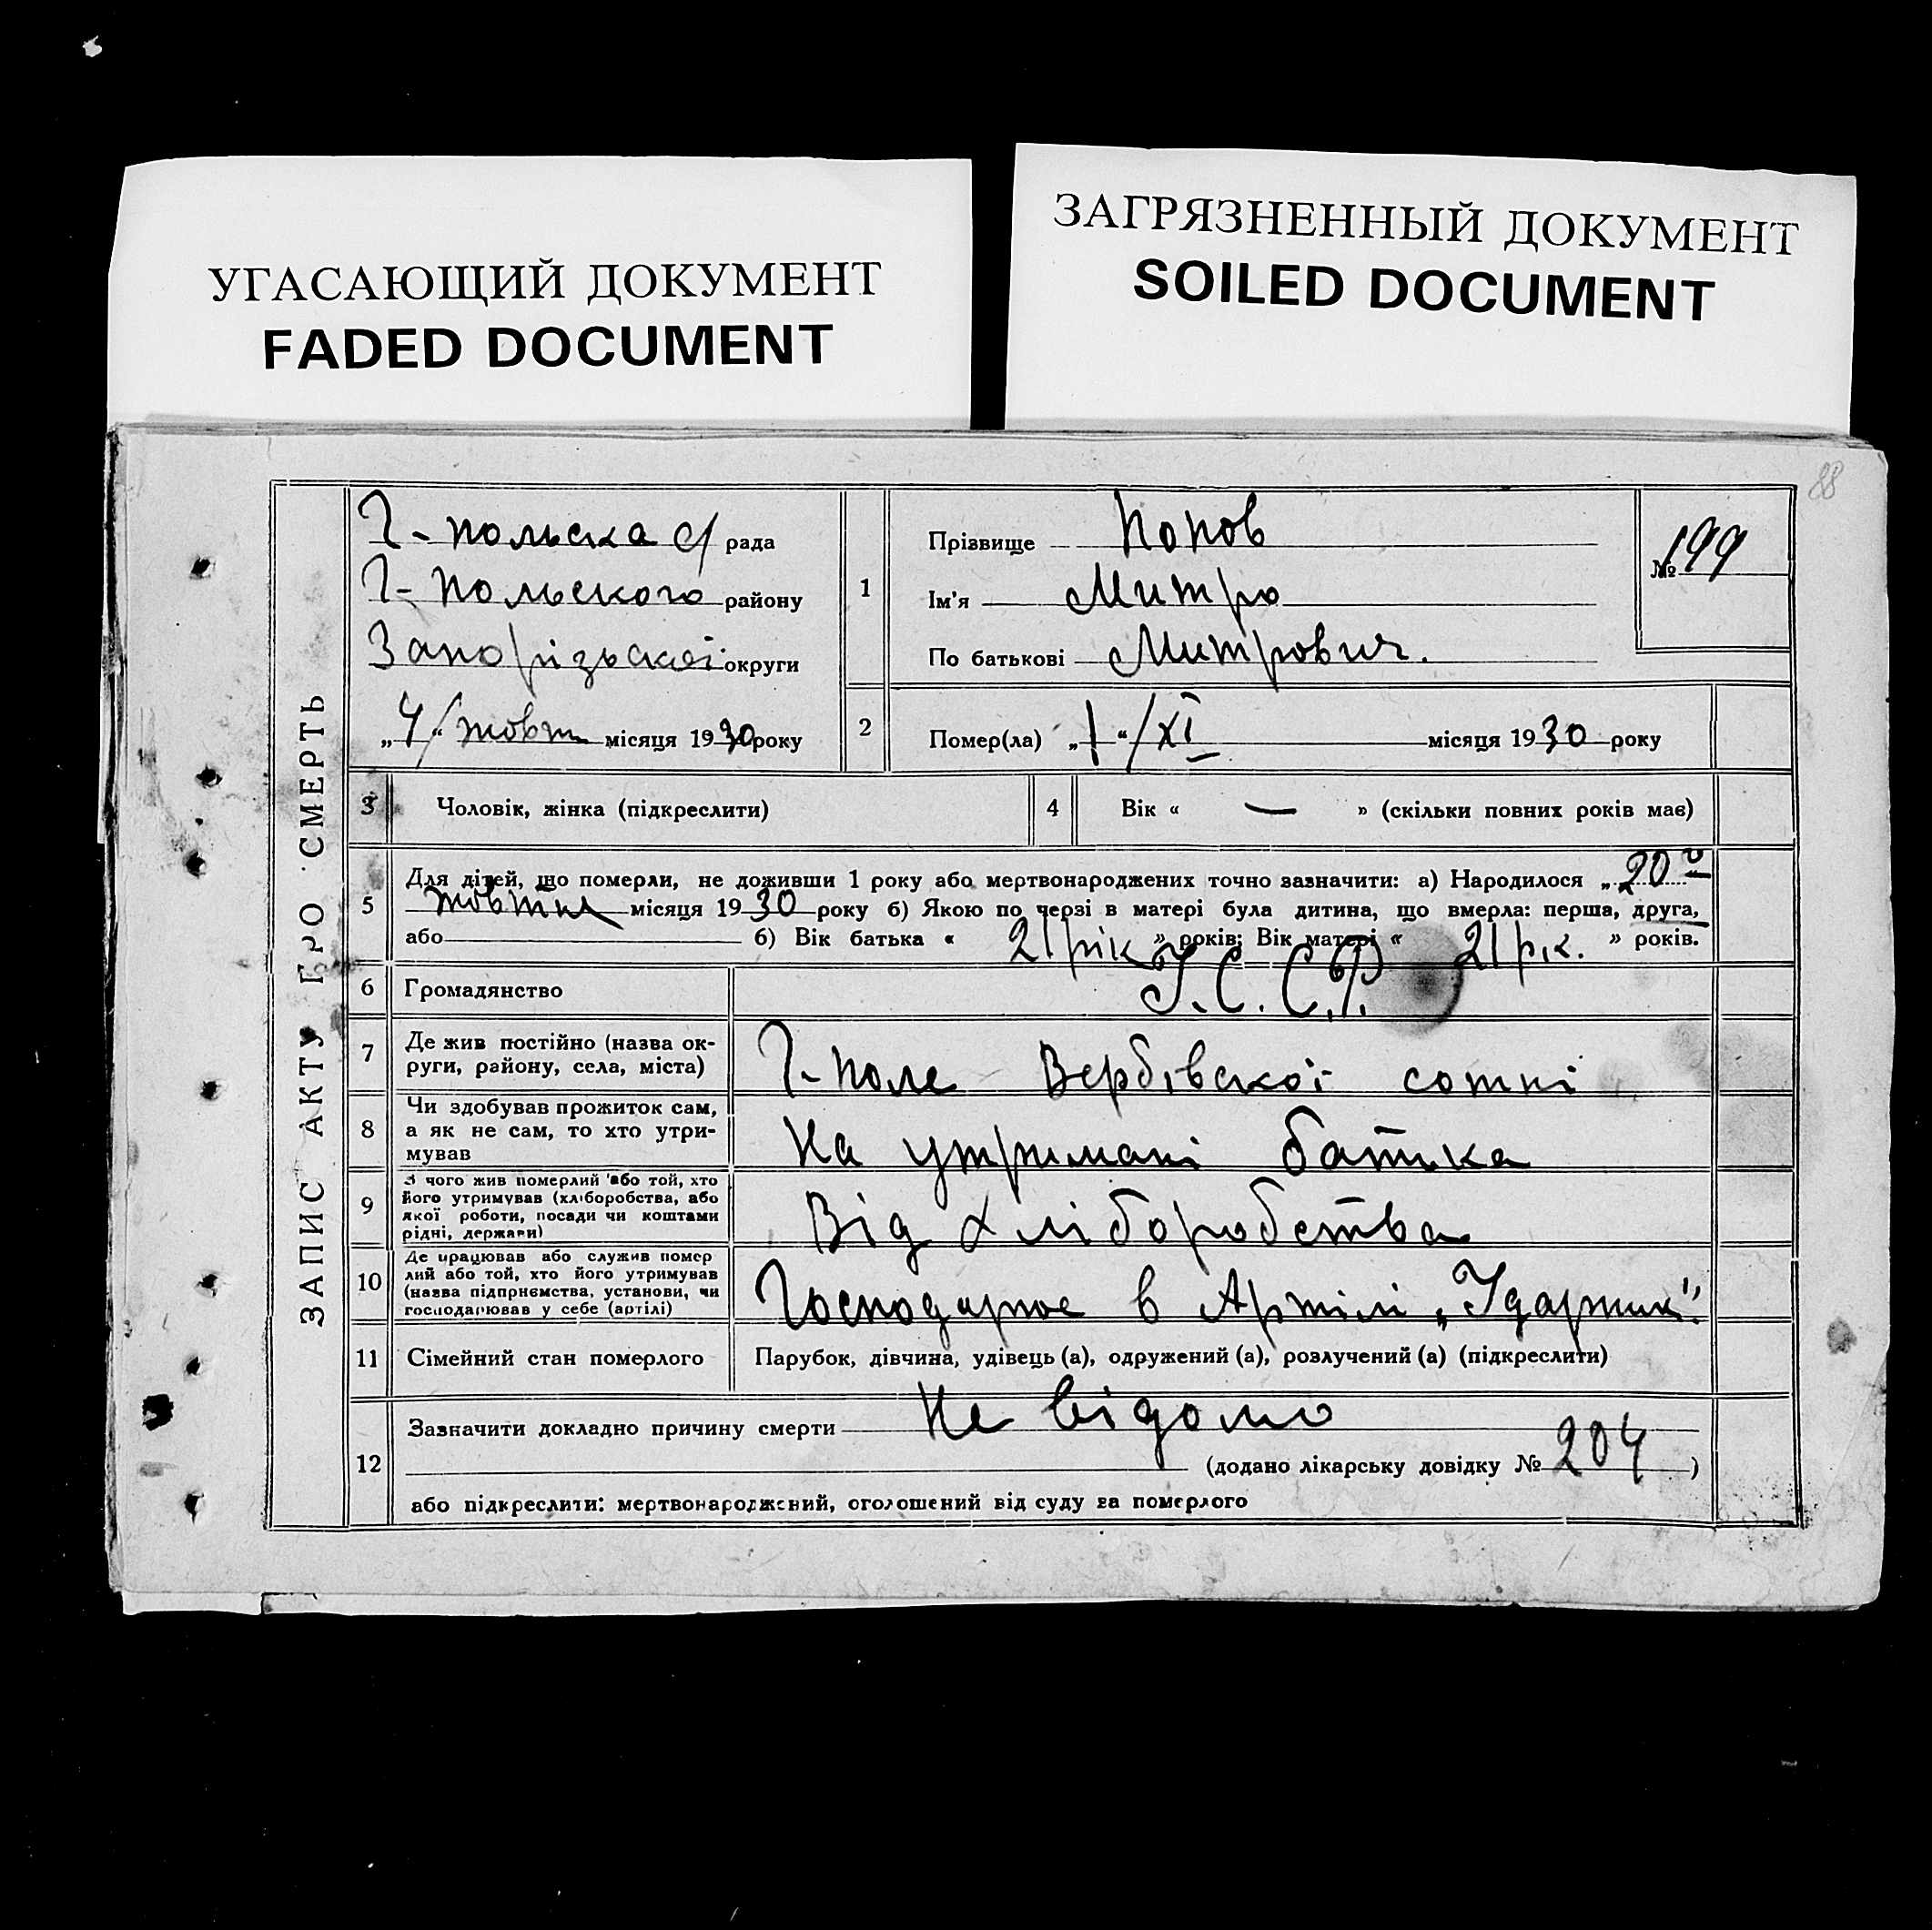 УГАСАЮЩИЙ ДОКУМЕНТ
FADED DOCUMENT
ЗАГРЯЗНЕННЫЙ ДОКУМЕНТ
SOILED DOCUMENT
88
ЗАПИС АКТУ ПРО СМЕРТЬ
Г-польска с/рада
Г-польского району
Запорізької округи
„4/“ жовт місяця 1930 року
1
Прізвище Попов
Ім'я Митро
По батькові Митрович.
№ 199
2
Помер(ла) „1“/XI місяця 1930 року
3
Чоловік, жінка (підкреслити)
4
Вік « — » (скільки повних років має)
5
Для дітей, що померли, не доживши 1 року або мертвонароджених точно зазначити: а) Народилося „20
жовтня місяця 1930 року б) Якою по черзі в матері була дитина, що вмерла: перша, друга,
або б) Вік батька « 21 рік » років; Вік матері « 21 рік. » років.
6
Громадянство
У.С.С.Р.
7
Де жив постійно (назва ок-
руги, району, села, міста)
Г-поле Вербівської сотні
8
Чи здобував прожиток сам,
а як не сам, то хто утри-
мував
На утримані батька
9
З чого жив померлий або той, хто
його утримував (хліборобства, або
якої роботи, посади чи коштами
рідні, держави)
Від хліборобства
10
Де працював або служив помер
лий або той, хто його утримував
(назва підприємства, установи, чи
господарював у себе (артілі)
Господарює в Артілі „Ударник".
11
Сімейний стан померлого
Парубок, дівчина, удівець (а), одружений (а), розлучений (а) (підкреслити)
12
Зазначити докладно причину смерти Не відомо
(додано лікарську довідку № 204)
або підкреслити: мертвонароджений, оголошений від суду за померлого